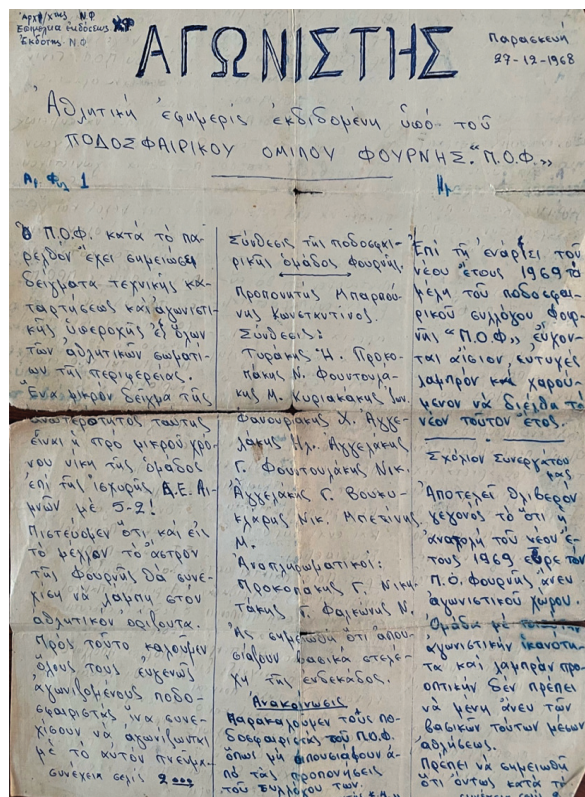 Ἀρχ/χτης Ν.Φ
Ἐπιμέλια ἐκδόσεως
Ἐκδότης Ν Φ
ΑΓΩΝΙΣΤΗΣ
Παρασκευή
27-12-1968
Ἀθλητική ἐφημερίς ἐκδιδομένη ὑπό τοῦ
ΠΟΔΟΣΦΑΙΡΙΚΟΥ ΟΜΙΛΟΥ ΦΟΥΡΝΗΣ. "Π.Ο.Φ."
Αρ. Φυ 1
Ὁ Π.Ο.Φ. κατά τό πα-
ρελθόν ἔχει σημειώσει
δείγματα τεχνικῆς κα-
ταρτήσεως καί ἀγωνιστι-
κῆς ὑπεροχῆς ἐξ ὅλων
τῶν ἀθλητικῶν σωματι-
ων τῆς περιφερείας.
Ἕνα μικρόν δεῖγμα τῆς
ἀνωτερότητος ταύτης
εἶναι ἡ πρό μικροῦ χρο-
νου νίκη τῆς ὁμάδος
ἐπί τῆς ἰσχυρῆς Δ.Ε. Λι-
μνῶν μέ 5-2!
Πιστεύομεν ὅτι καί εἰς
τό μέλλον τό ἄστρον
τῆς Φουρνῆς θά συνε-
χίση νά λάμπη στόν
ἀθλητικόν ὁρίζοντα.
Πρός τοῦτο καλοῦμεν
ὅλους τούς εὐγενῶς
ἀγωνιζομένους ποδο-
σφαιριστάς ἵνα συνε-
χίσουν νά ἀγωνίζωνται
μέ τό αὐτόν πνεῦμα-
συνέχεια σελίς 2
Σύνθεσις τῆς ποδοσφαι-
ρικῆς ὁμάδος Φουρνῆς.
Προπονητής Μπαρού-
νης Κωνσταντίνος.
Σύνθεσις:
Τυράκης Ἠ. Προκο-
πάκης Ν. Φουντουλά-
κης Μ. Κυριακάκης Ἰων.
Φανουριάκης Χ. Ἀγγε-
λάκης Ηλ. Ἀγγελάκης
Γ. Φουντουλάκης Νικ.
Ἀγγελάκης Γ. Βουκυ-
κλάρης Νικ. Μπετίνης
Μ.
Ἀναπληρωματικοί:
Προκοπάκης Γ. Νικη-
τάκης Γ. Φαλκώνης Ν.
Ἄς σημειωθῆ ὅτι ἀπου-
σιάζουν βασικά στελέ-
χη τῆς ἑνδεκάδος.
Ἀνακοίνωσις
Παρακαλοῦμεν τούς πο-
δοσφαιριστάς τοῦ Π.Ο.Φ.
ὅπως μή ἀπουσιάζουν ἀ-
πό τάς προπονήσεις
τοῦ συλλόγου των.
Ἐπί τῇ ἐνάρξει τοῦ
νέου ἔτους 1969 τά
μέλη τοῦ ποδοσφαι-
ρικοῦ συλλόγου Φουρ-
νῆς "Π.Ο.Φ" εὔχον-
ται αἴσιον, εὐτυχές
λαμπρόν καί χαρού-
μενον νά διέλθη τό
νέον τοῦτον ἔτος.
Σχόλιον Συνεργάτου
μας
Ἀποτελεῖ θλιβερόν
γεγονός τό ὅτι ἡ
ἀνατολή τοῦ νέου ἔ-
τους 1969 εὗρε τόν
Π.Ο. Φουρνῆς ἄνευ
ἀγωνιστικοῦ χώρου.
Ὁμάδα μέ
ἀγωνιστικήν ἱκανότη-
τα καί λαμπράν προ-
οπτικήν δέν πρέπει
νά μένη ἄνευ τῶν
βασικῶν τούτων μέσων
ἀθλήσεως.
Πρέπει νά σημειωθῆ
ὅτι ὄντως κατά τ